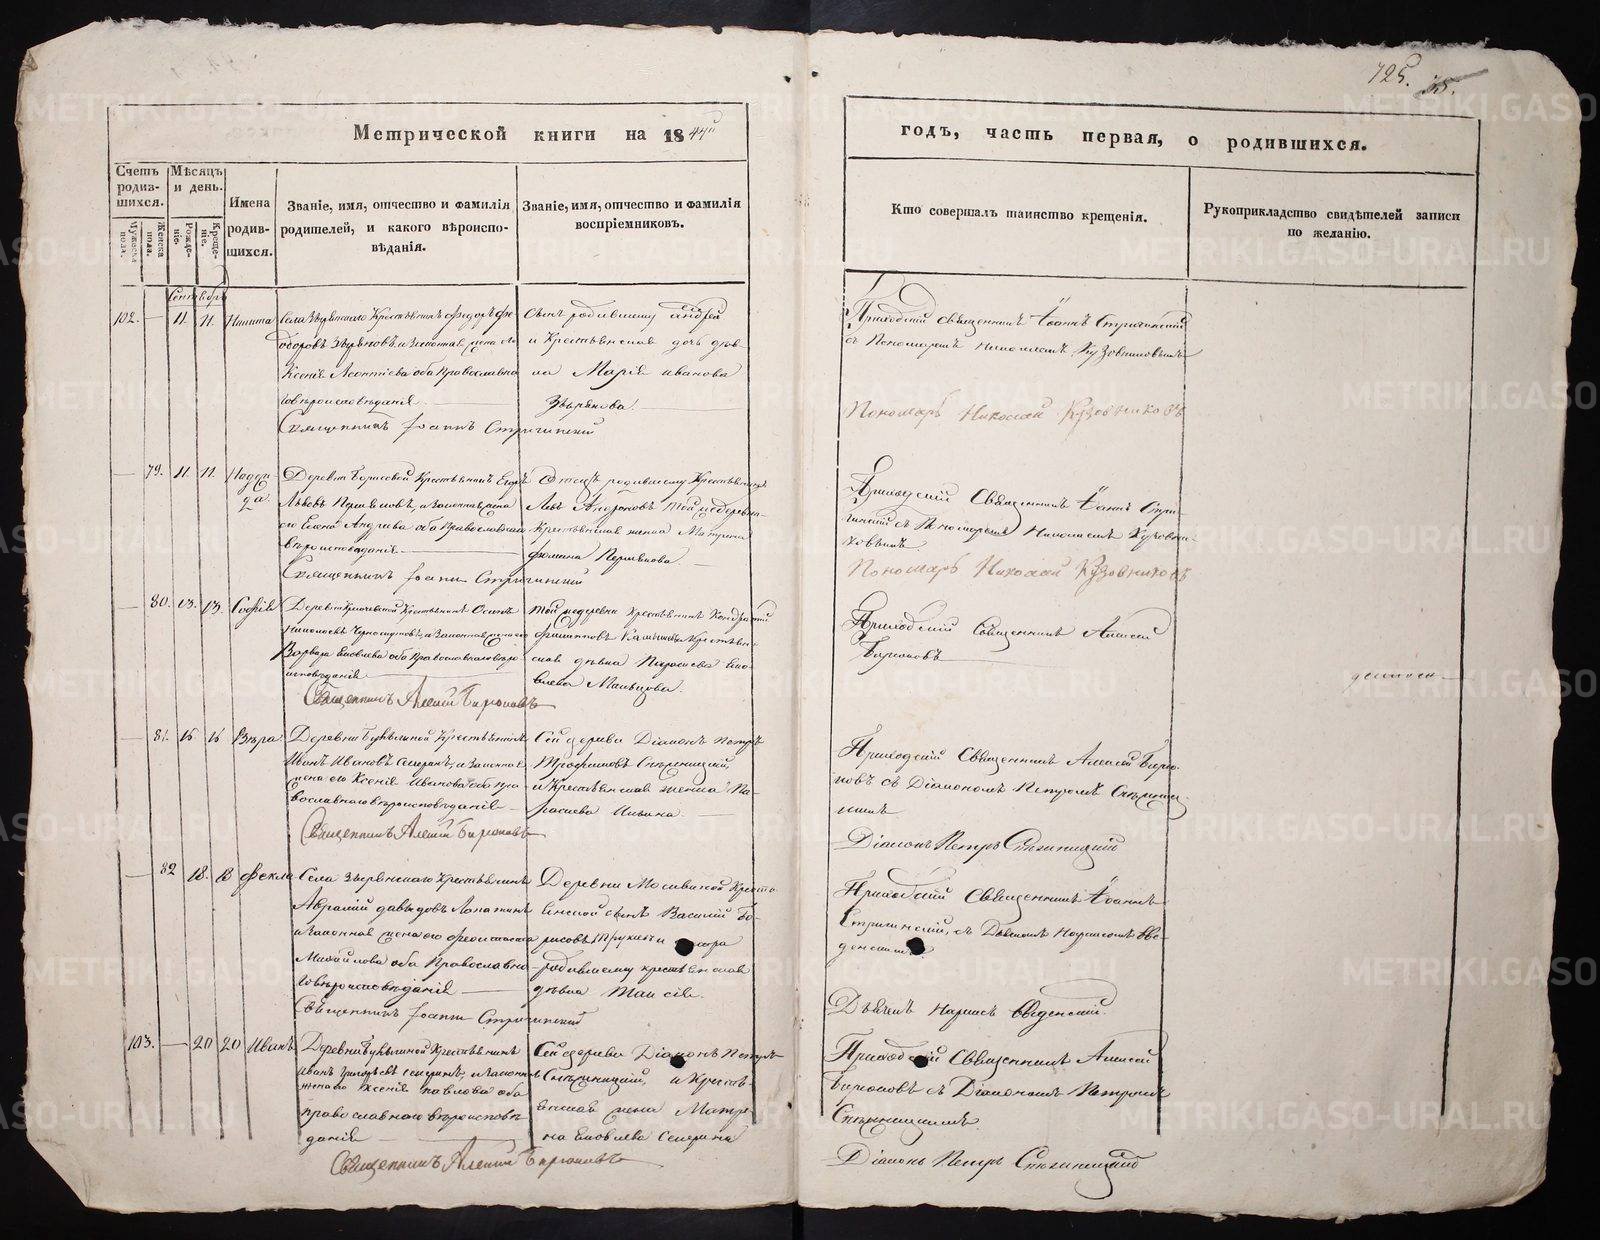 725.
Метрической книги на 1844й
годъ, часть первая, о родившихся.
Счетъ родив-
шихся.
Мужеска пола.
Женска пола.
Мѣсяцъ
и день.
Рожде-
нія.
Креще-
нія.
Имена
родив-
шихся.
Званіе, имя, отчество и фамилія
родителей, и какого вѣроиспо-
вѣданія.
Званіе, имя, отчество и фамилія
воспріемниковъ.
Кто совершалъ таинство крещенія.
Рукоприкладство свидѣтелей записи
по желанію.
Сентябрь
102. — 11. 11. Никита
Села Зырянскаго Крестьянинъ Федоръ Фе-
доровъ Зыряновъ, и Законная жена его
Ксенія Леонтіева оба Православна-
го вѣроисповѣданія.
Священникъ Іоаннъ Стригинскій
Сынъ родившему Андрей
и Крестьянская дочь дѣв-
ка Марія Иванова
Зырянова.
Приходскій Священникъ Іоаннъ Стригинскій
съ Пономаремъ Николаемъ Кузовниковымъ
Пономарь Николай Кузовниковъ
— 79. 11. 11. Надеж
да
Деревни Борисовой Крестьянинъ Егоръ
Львовъ Пермяковъ, и Законная жена
его Елена Андреева оба Православнаго
вѣроисповѣданія
Священникъ Іоаннъ Стригинскій
Отецъ родившему Крестьянинъ
Левъ Андроновъ Той же деревни
Крестьянская жена Матрона
Фомина Пермякова.
Приходскій Священникъ Іоаннъ Стри-
гинскій съ Пономаремъ Николаемъ Кузовни-
ковымъ
Пономарь Николай Кузовниковъ
— 80. 13. 13. Софія
Крестьянинъ Осипъ
и Законная жена его
Варвара Яковлева оба Православнаго вѣро-
исповѣданія
Священникъ Алексѣй Бирюковъ
Той же деревни Крестьянинъ Кондратій
Филипповъ Крестьян-
ская дѣвка Парасковья Яко-
влева Мальцова.
Приходскій Священникъ Алексѣй
Бирюковъ
— 81. 16 16 Вѣра
Крестьянинъ
Иванъ Ивановъ и Законная
жена его Ксенія Иванова оба пра-
вославнаго вѣроисповѣданія
Священникъ Алексѣй Бирюковъ
Сей церкви Діаконъ Петръ
Трофимовъ
и Крестьянская жена Па-
расковья Ильина.
Приходскій Священникъ Алексѣй Бирю-
ковъ съ Діакономъ Петромъ
Діаконъ Петръ
— 82 18. 18 Фекла
Села Зырянскаго Крестьянинъ
Аврамій Давыдовъ Лопатинъ
и Законная жена его Феоктиста
Михайлова оба Православна-
го вѣроисповѣданія
Священникъ Іоаннъ Стригинскій
Деревни Мосиной Кресть-
янской сынъ Василій Бо-
рисовъ и сестра
родившему крестьянская
дѣвка Таисія.
Приходскій Священникъ Іоаннъ
Стригинскій, съ Дьячкомъ Наркисомъ Вве-
денскимъ
Дьячекъ Наркисъ Введенскій.
103. — 20 20 Иванъ
Крестьянинъ
Иванъ и Законная
жена его Ксенія Павлова оба
православнаго вѣроисповѣ-
данія
Священникъ Алексѣй Бирюковъ
Сей церкви Діаконъ Петръ
и Кресть-
янская жена Матре-
на Яковлева
Приходскій Священникъ Алексѣй
Бирюковъ съ Діакономъ Петромъ
Діаконъ Петръ
METRIKI.GASO-URAL.RU